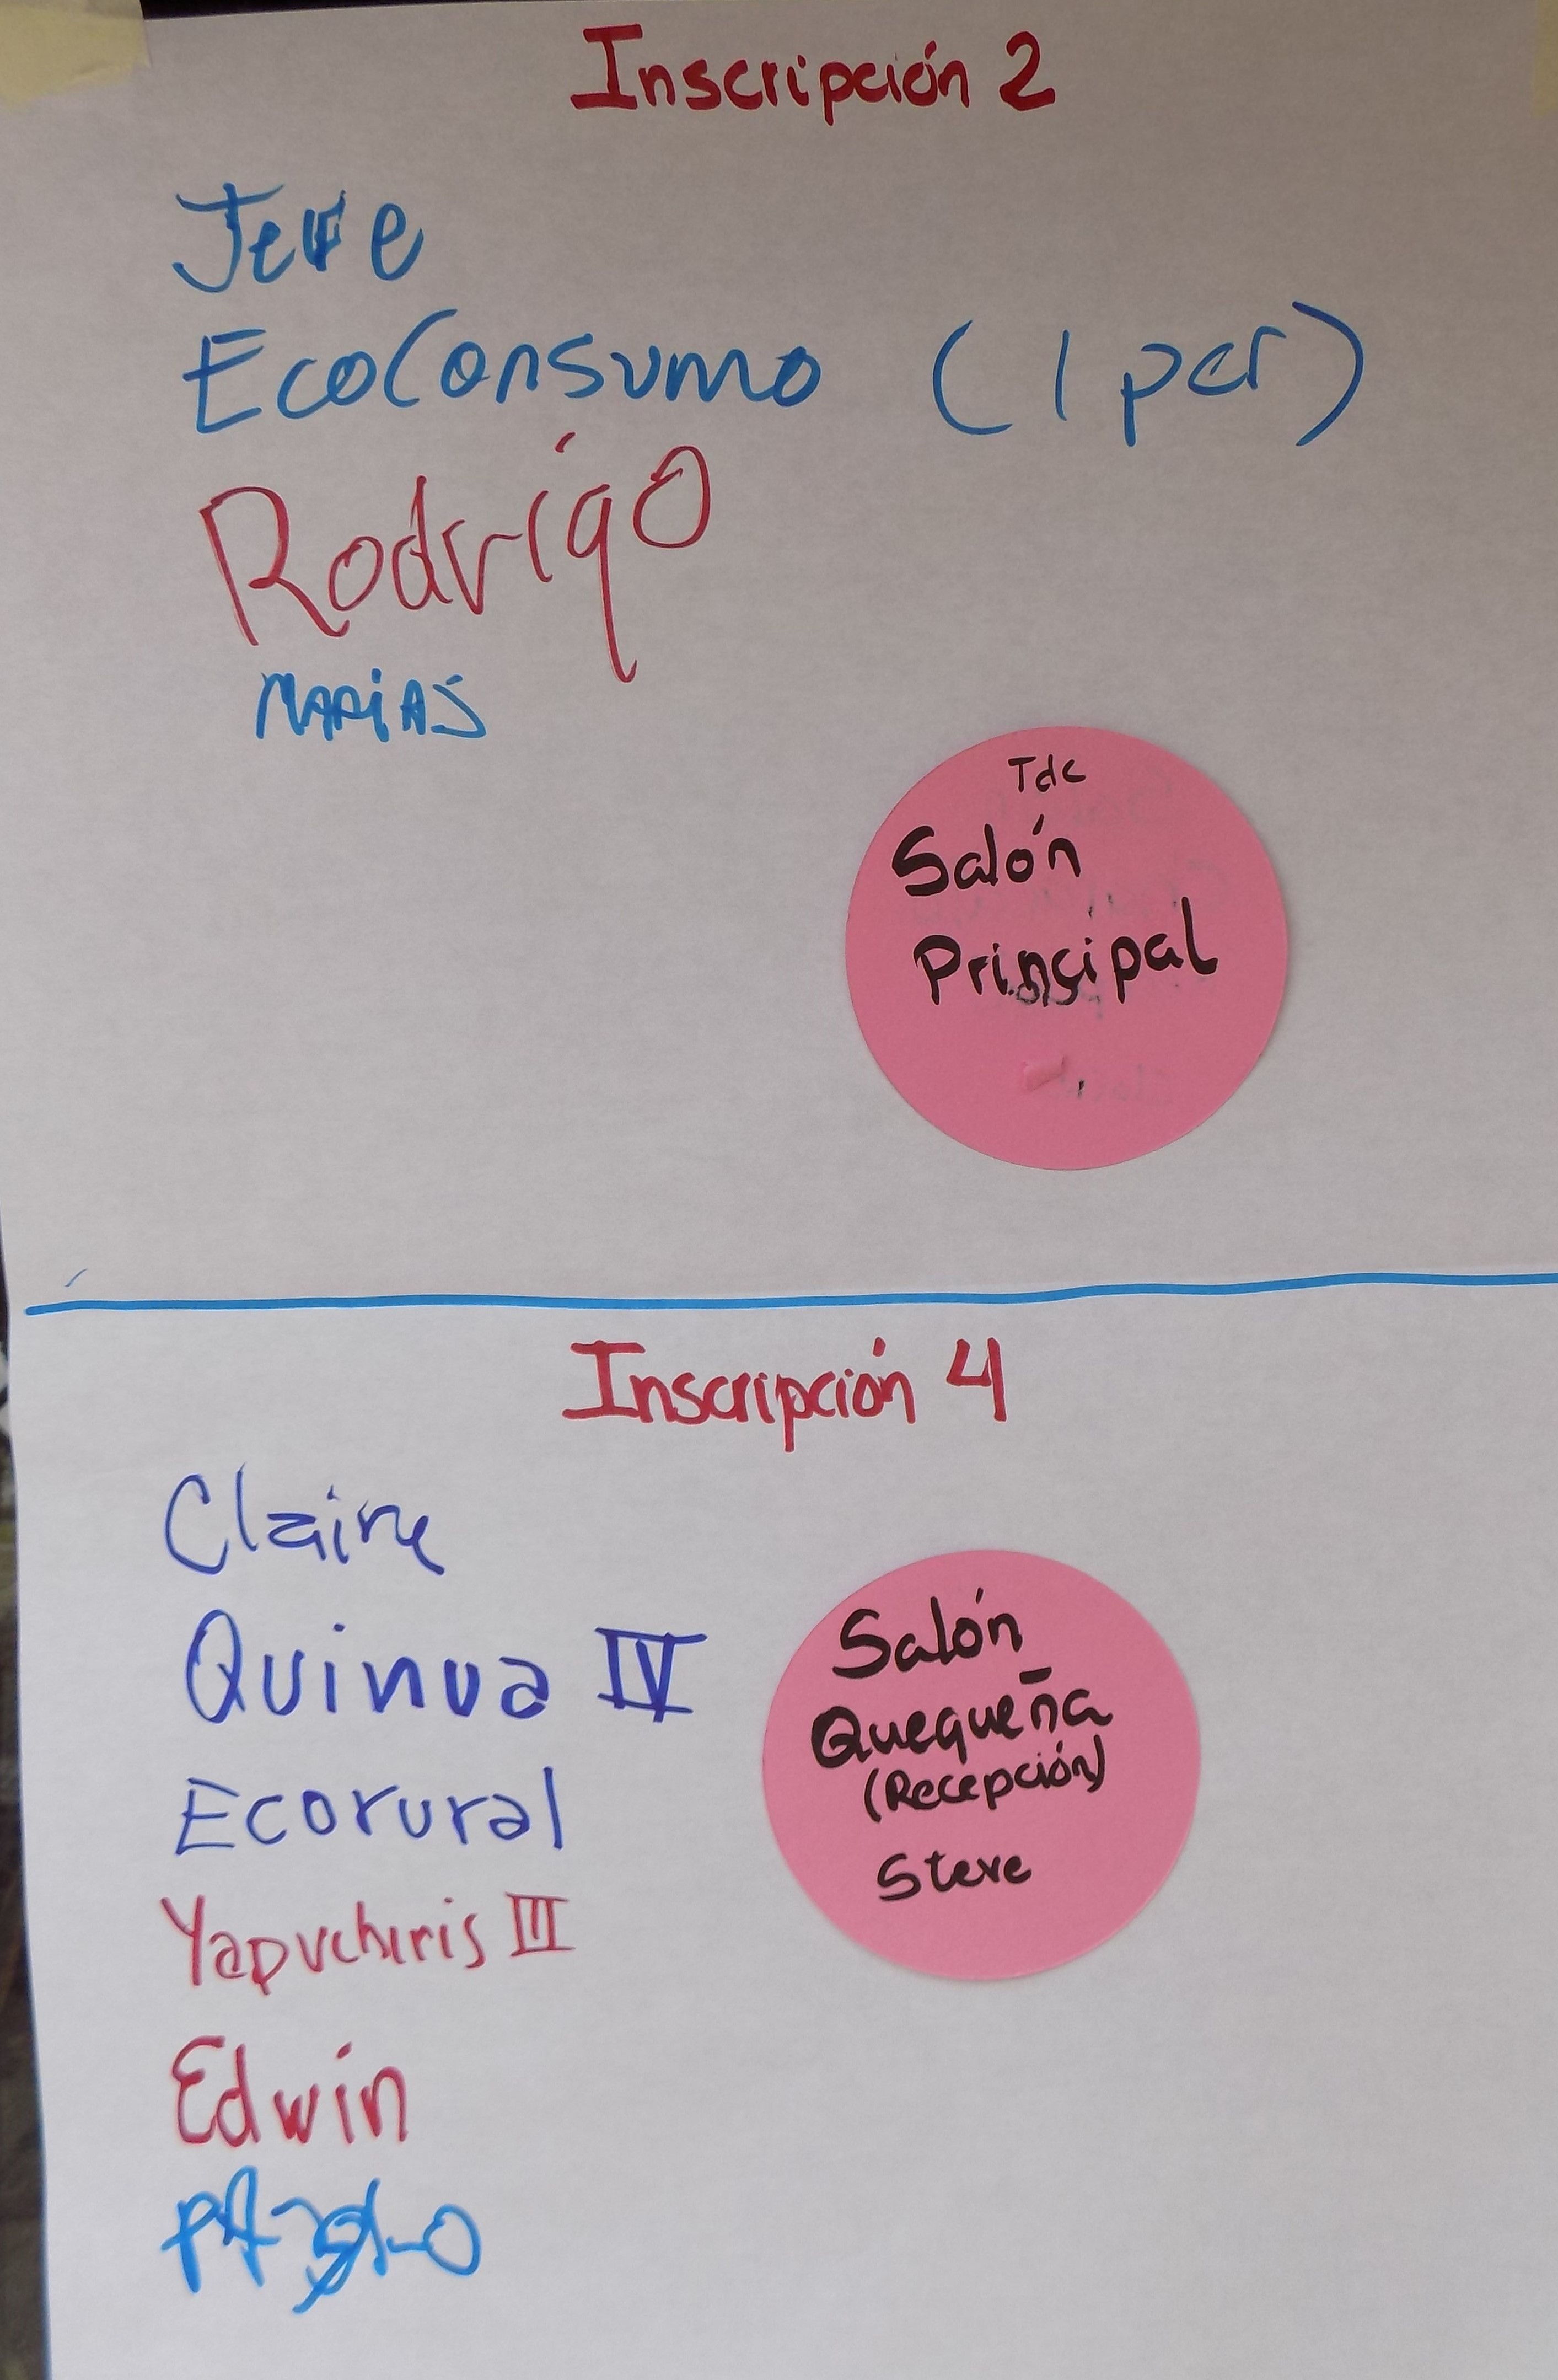 Inscripción 2
EcoConsumo (1 per)
Rodrigo
MARIAS
Tdc
Salón
Principal
Inscripción 4
Claire
Quinua IV
Ecorural
Yapuchiris III
Edwin
Salón
Quequeña
(Recepción)
Steve